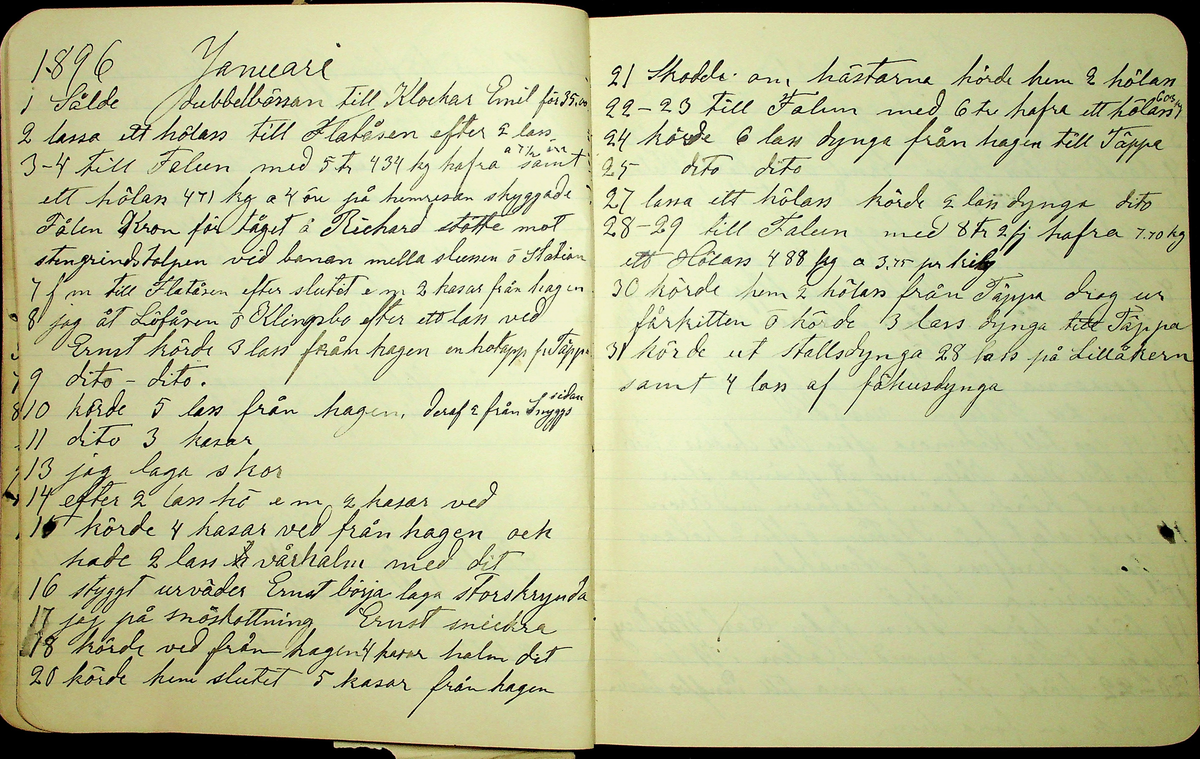 1896 Januari
1 Sålde dubbelbössan till Klockar Emil för 35,00
2 lassa ett hölass till Flatåsen efter 2 lass
3-4 till Falun med 5 tr 434 kg hafra a 7½ öre samt
ett hölass 471 kg a 4 öre på hemresan skyggade
Fålen Kron för tåget å Richard stötte mot
stengrindstolpen vid banan mella slussen o Station
7 f m till Flatåsen efter slutet e m 2 kasar från hagen
8 jag åt Löfåsen o Klingsbo efter ett lass ved
Ernst körde 3 lass från hagen en hotapp fr Täppa
9 dito - dito.
10 körde 5 lass från hagen, deraf 2 från Snyggs sidan
11 dito 3 kasar
13 jag laga skor
14 efter 2 lass hö e m 2 kasar ved
15 körde 4 kasar ved från hagen och
hade 2 lass vårhalm med dit
16 styggt urväder Ernst börja laga storskrynda
17 jag på snöskottning Ernst snickra
18 körde ved från hagen 4 kasar halm dit
20 körde hem slutet 5 kasar från hagen
21 Skodde om hästarna körde hem 2 hölass
22-23 till Falun med 6 tr hafra ett hölass
24 körde 6 lass dynga från hagen till Täppa
25 dito dito
27 lassa ett hölass körde 2 lass dynga dito
28-29 till Falun med 8 tr 2 fj hafra 7.70 kg
ett Hölass 488 kg a 3,75 pr kilg
30 körde hem 2 hölass från Täppa drog ur
fårkitten o körde 3 lass dynga till Täppa
31 körde ut stallsdynga 28 lass på Lillåkern
samt 4 lass af fähusdynga